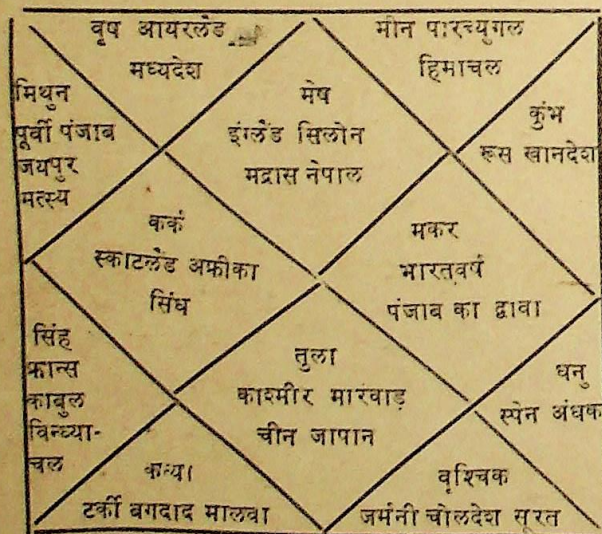 वृष आयरलैंड
मध्यदेश
मीन पारच्युगल
हिमाचल
मिथुन
पूर्वी पंजाब
जयपुर
मत्स्य
मेष
इंग्लैंड सिलोन
मद्रास नेपाल
कुंभ
रूस खानदेश
कर्क
स्काटलैंड अफ्रीका
सिंध
मकर
भारतवर्ष
पंजाब का द्वावा
सिंह
फ्रान्स
काबुल
विन्ध्या-
चल
तुला
काश्मीर मारवाड़
चीन जापान
धनु
स्पेन अंधक
कन्या
टर्की बगदाद मालवा
वृश्चिक
जर्मनी चोलदेश सूरत